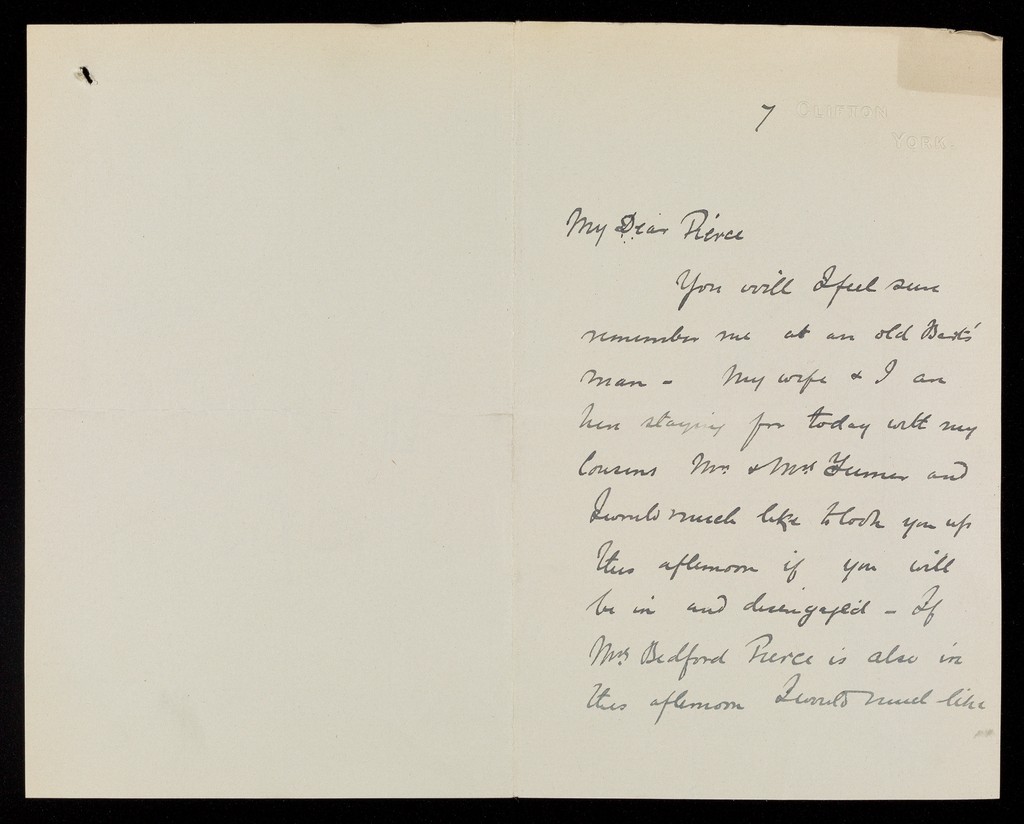 7 CLIFTON
YORK.
My Dear Pierce
You will I feel sure
remember me as an old Bart's
man - My wife & I are
here staying for today with my
Cousins Mr. & Mrs and
I would much like to look you up
this afternoon if you will
be in and disengaged - If
Mrs Bedford Pierce is also in
this afternoon I would much like